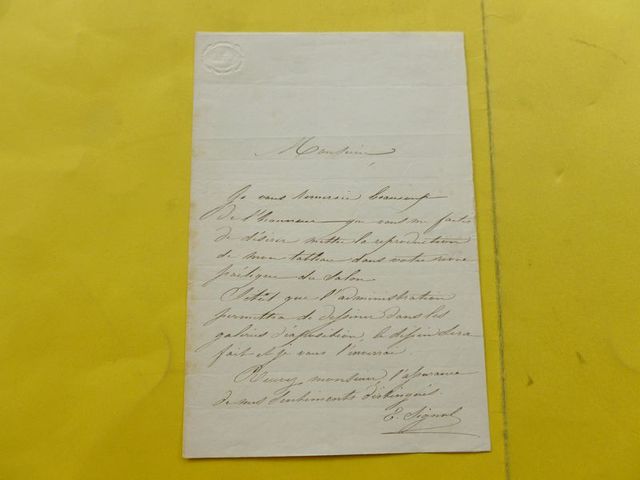 Monsieur,
Je vous remercie beaucoup
de l'honneur que vous me faites
de désirer mettre la reproduction
de mon tableau dans votre revue
poétique du Salon
Sitôt que l'administration
permettra de dessiner dans les
galeries d'exposition, le dessin sera
fait et je vous l'enverrai
Recevez monsieur l'assurance
de mes sentiments distingués.
E. Signol